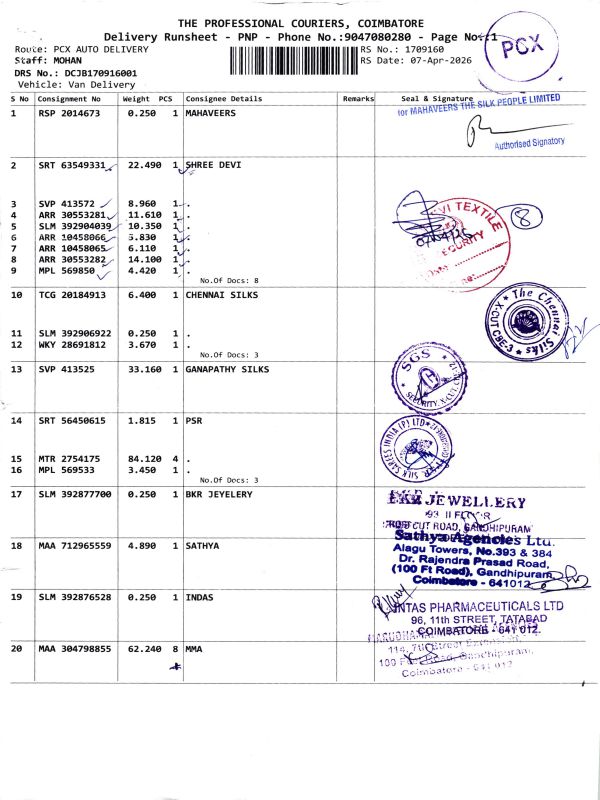 THE PROFESSIONAL COURIERS, COIMBATORE
Delivery Runsheet - PNP - Phone No.:9047080280 - Page No.:1
PCX
Route: PCX AUTO DELIVERY
RS No.: 1709160
Staff: MOHAN
RS Date: 07-Apr-2026
DRS No.: DCJB170916001
Vehicle: Van Delivery
S No Consignment No Weight PCS Consignee Details Remarks Seal & Signature
for MAHAVEERS THE SILK PEOPLE LIMITED
1 RSP 2014673 0.250 1 MAHAVEERS
Authorised Signatory
2 SRT 63549331 22.490 1 SHREE DEVI
3 SVP 413572 8.960 1 .
4 ARR 30553281 11.610 1 .
5 SLM 392904039 10.350 1 .
6 ARR 10458066 3.830 1 .
7 ARR 10458065 6.110 1 .
8 ARR 30553282 14.100 1 .
9 MPL 569850 4.420 1 .
No.Of Docs: 8
VI TEXTILE
8
10 TCG 20184913 6.400 1 CHENNAI SILKS
The Chennai Silks
X-CUT CBE-3
11 SLM 392906922 0.250 1 .
12 WKY 28691812 3.670 1 .
No.Of Docs: 3
13 SVP 413525 33.160 1 GANAPATHY SILKS
SGS
SECURITY, X-CUT, CBE-12
14 SRT 56450615 1.815 1 PSR
SILK SAREES INDIA (P) LTD
15 MTR 2754175 84.120 4 .
16 MPL 569533 3.450 1 .
No.Of Docs: 3
17 SLM 392877700 0.250 1 BKR JEYELERY
BKR JEWELLERY
93 II FLOOR
CROSS CUT ROAD, GANDHIPURAM
18 MAA 712965559 4.890 1 SATHYA
Sathya Agencies Ltd.
Alagu Towers, No.393 & 384
Dr. Rajendra Prasad Road,
(100 Ft Road), Gandhipuram
Coimbatore - 641012
19 SLM 392876528 0.250 1 INDAS
INTAS PHARMACEUTICALS LTD
96, 11th STREET, TATABAD
COIMBATORE - 641 012.
20 MAA 304798855 62.240 8 MMA
114, 7th Street
100 Feet Road, Gandhipuram,
Coimbatore - 641 012